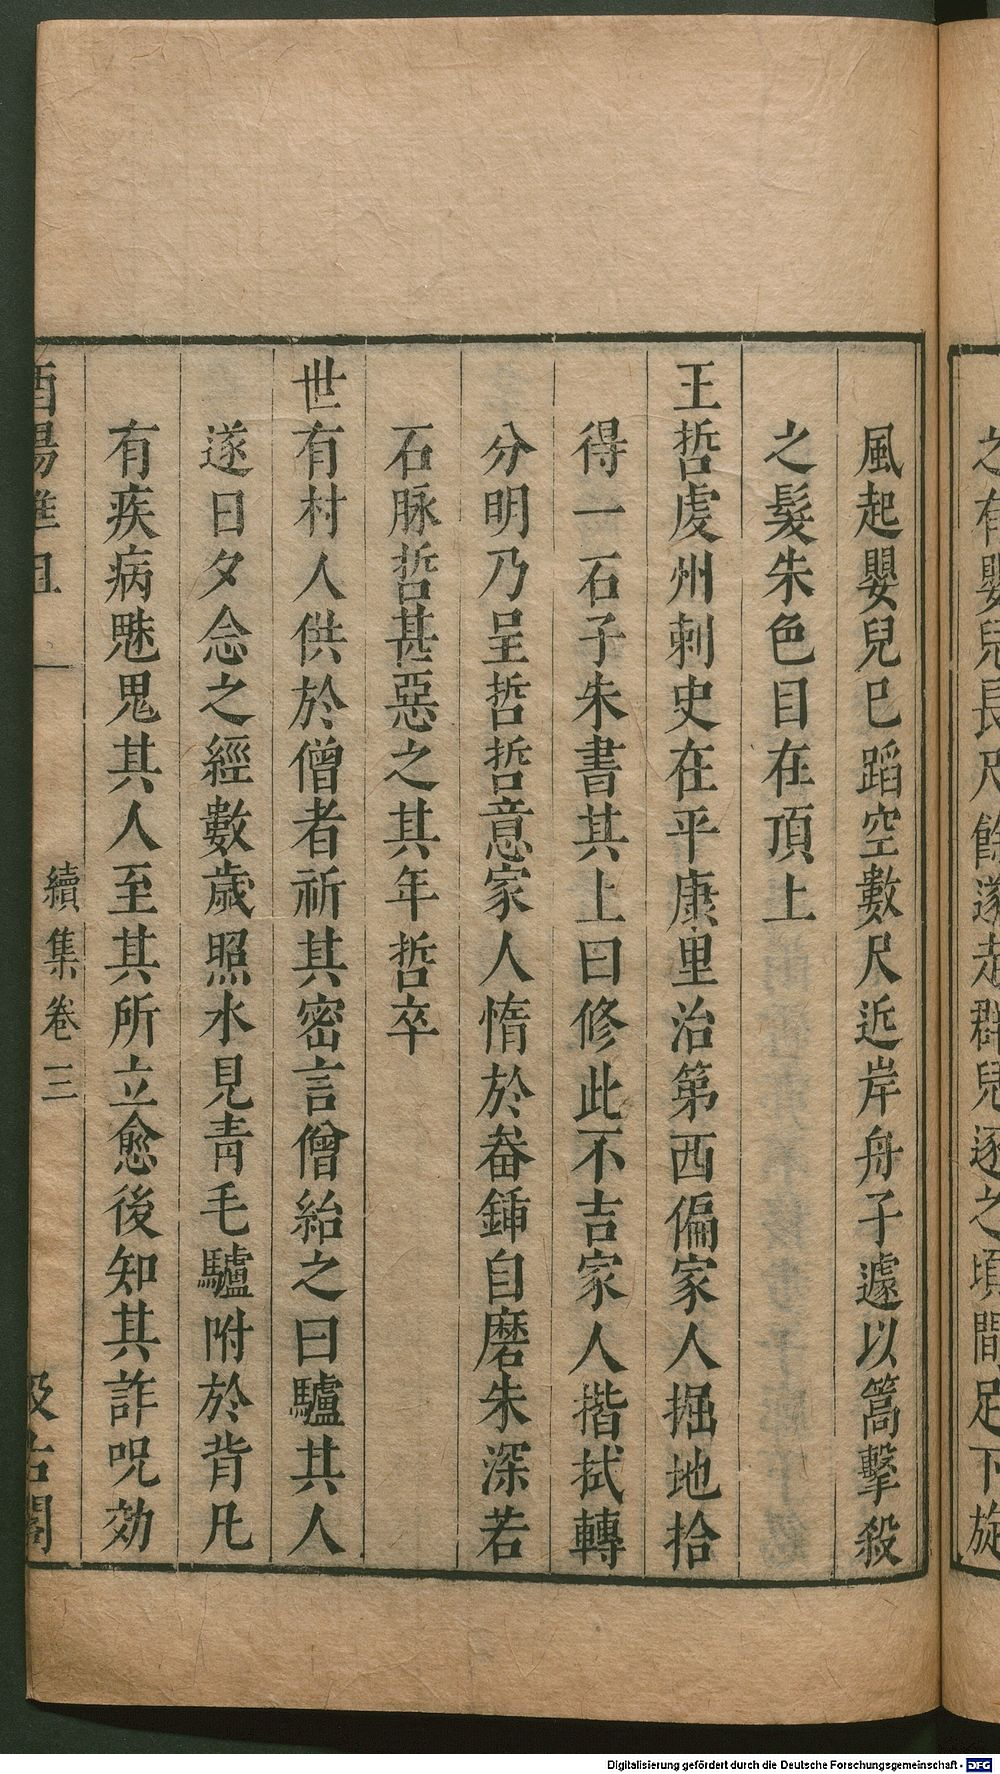 之有嬰兒長尺餘遂走群兒逐之頃間足下旋
風起嬰兒巳蹈空數尺近岸舟子遽以篙擊殺
之髮朱色目在頂上
王哲虔州刺史在平康里治第西偏家人掘地拾
得一石子朱書其上曰修此不吉家人揩拭轉
分明乃呈哲哲意家人惰於畚鍤自磨朱深若
石脉哲甚惡之其年哲卒
世有村人供於僧者祈其密言僧紿之曰驢其人
遂日夕念之經數歲照水見青毛驢附於背凡
有疾病魅鬼其人至其所立愈後知其詐呪効
酉陽雜俎 續集卷三 汲古閣
Digitalisierung gefördert durch die Deutsche Forschungsgemeinschaft - DFG